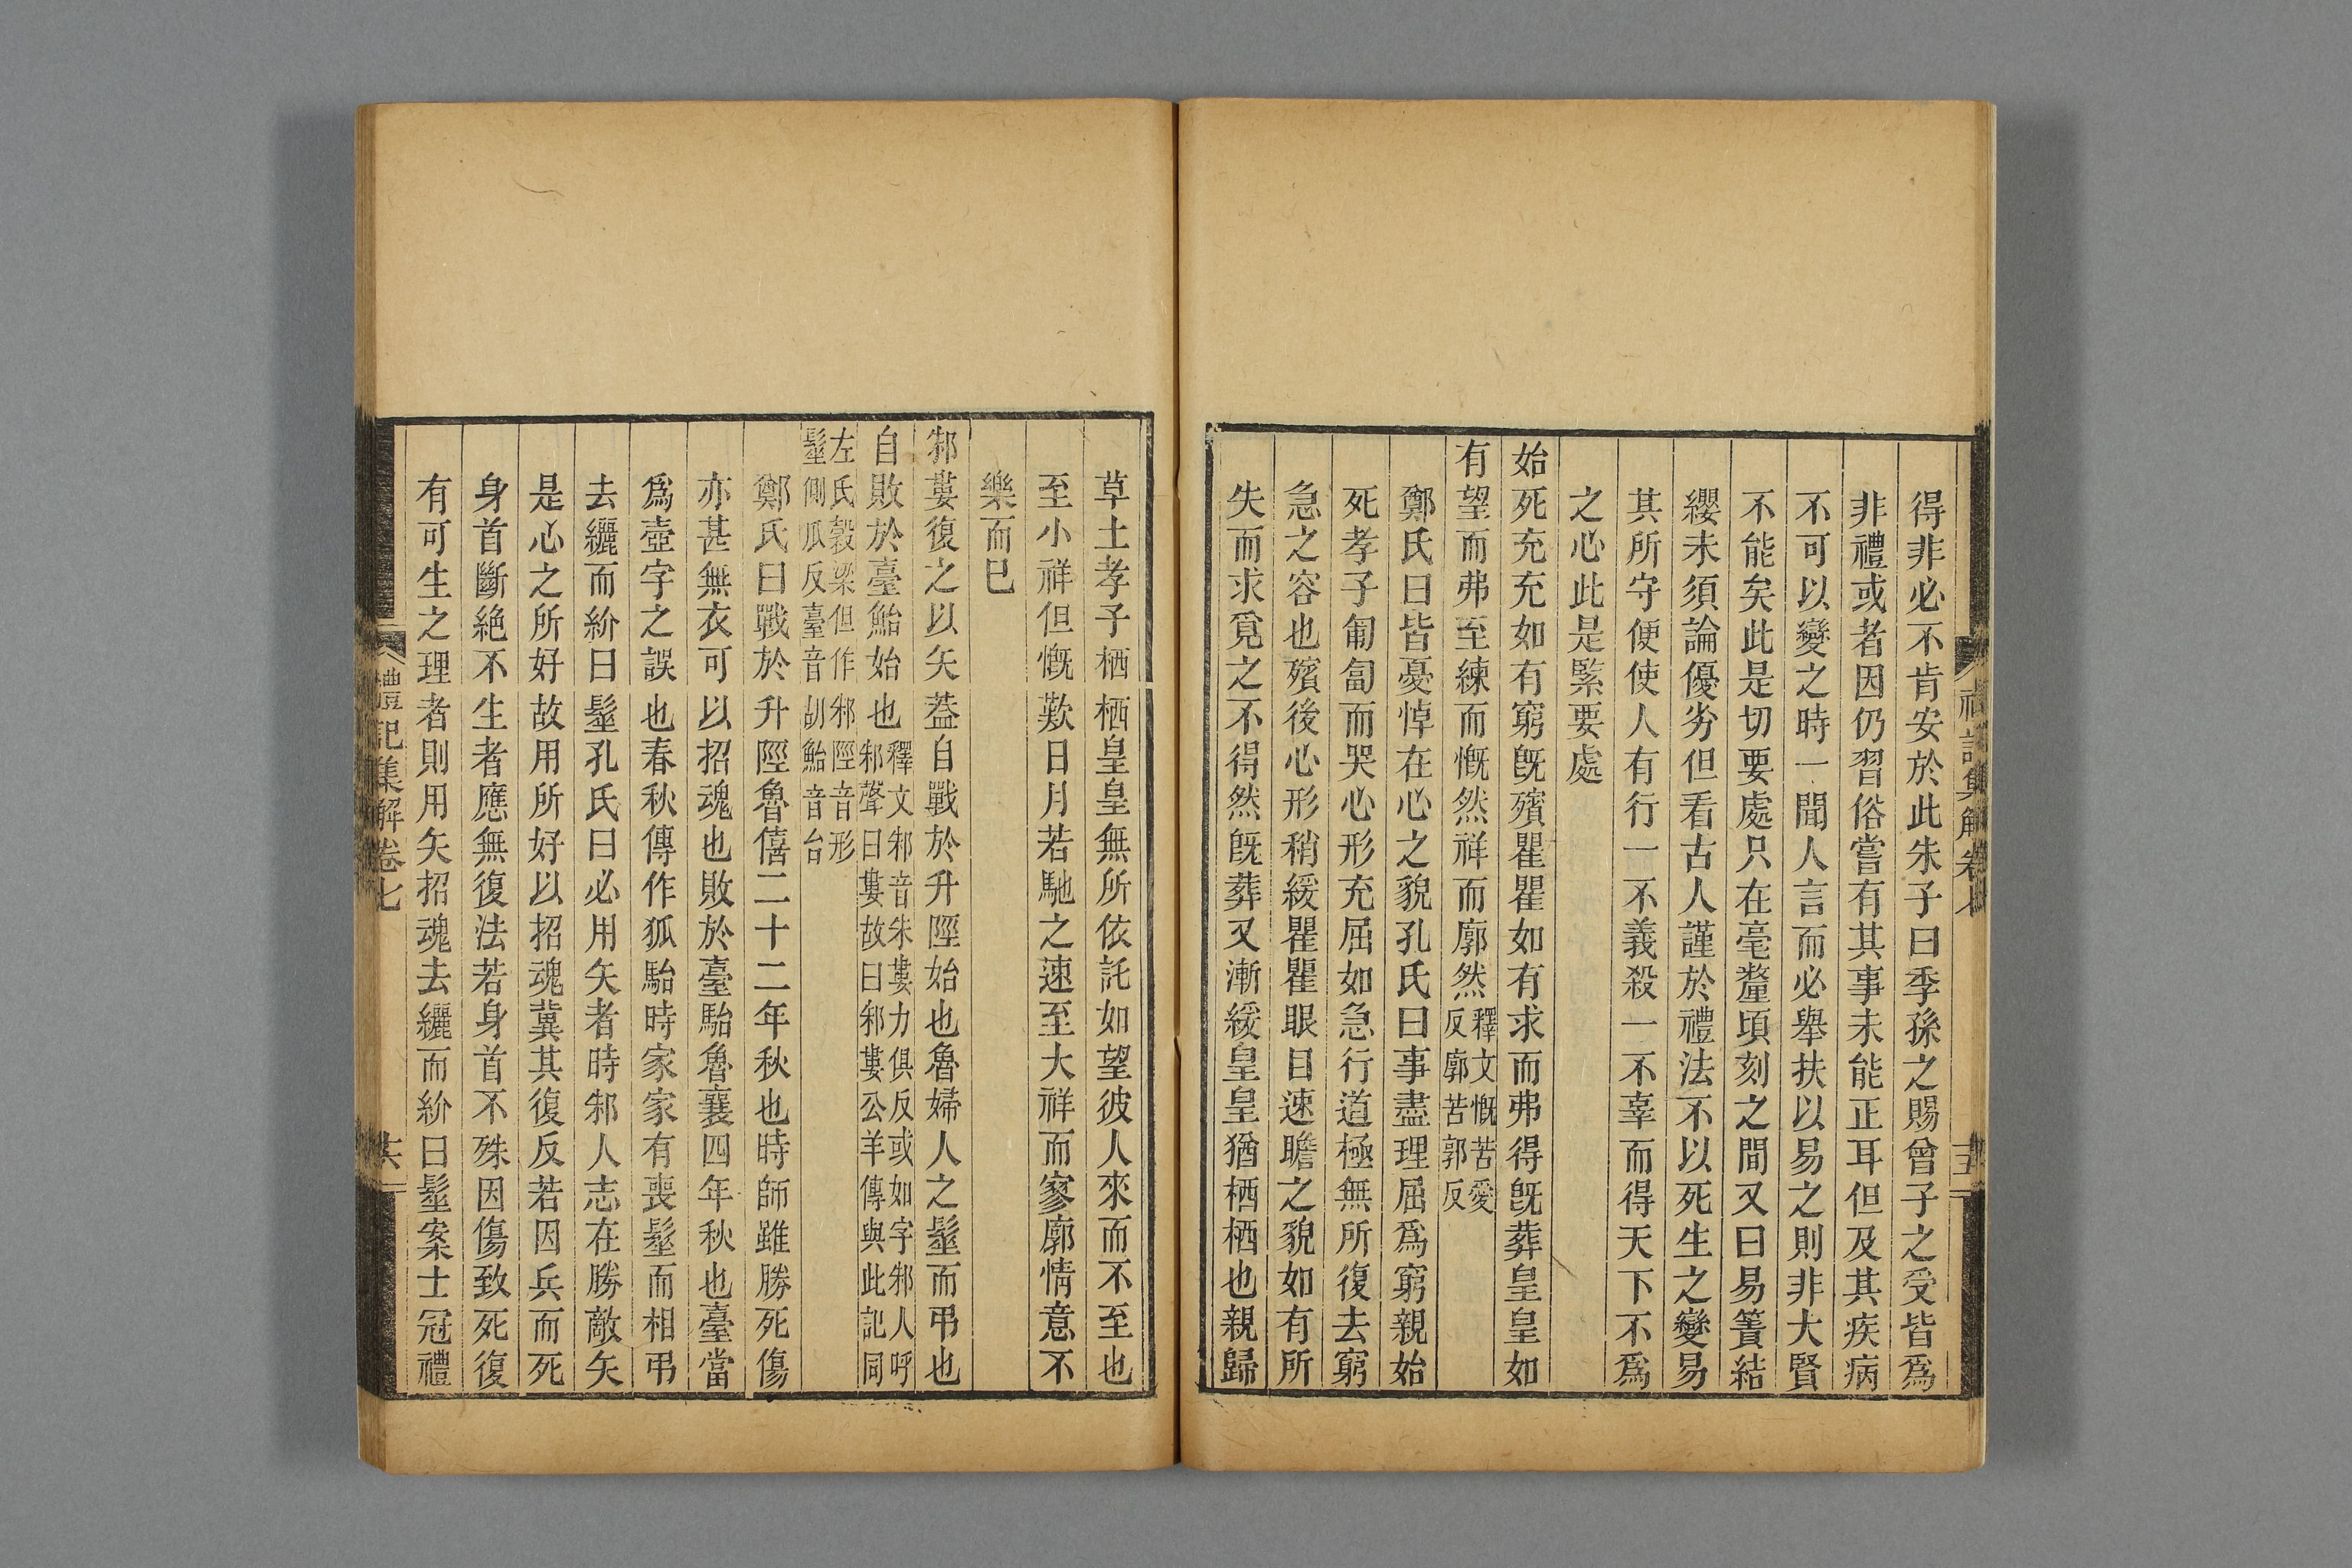 得非必不肯安於此朱子曰季孫之賜曾子之受皆爲
非禮或者因仍習俗嘗有其事未能正耳但及其疾病
不可以變之時一聞人言而必舉扶以易之則非大賢
不能矣此是切要處只在毫釐頃刻之間又曰易簀結
纓未須論優劣但看古人謹於禮法不以死生之變易
其所守便使人有行一不義殺一不辜而得天下不爲
之心此是緊要處
始死充充如有窮旣殯瞿瞿如有求而弗得旣葬皇皇如
有望而弗至練而慨然祥而廓然釋文慨苦愛
反廓苦郭反
鄭氏曰皆憂悼在心之貌孔氏曰事盡理屈爲窮親始
死孝子匍匐而哭心形充屈如急行道極無所復去窮
急之容也殯後心形稍緩瞿瞿眼目速瞻之貌如有所
失而求覓之不得然旣葬又漸緩皇皇猶栖栖也親歸
禮記集解卷七
十五
草土孝子栖栖皇皇無所依託如望彼人來而不至也
至小祥但慨歎日月若馳之速至大祥而寥廓情意不
樂而已
邾婁復之以矢蓋自戰於升陘始也魯婦人之髽而弔也
自敗於臺鮐始也釋文邾音朱婁力俱反或如字邾人呼
邾聲曰婁故曰邾婁公羊傳與此記同
左氏穀梁但作邾陘音形
髽側瓜反臺音胡鮐音台
鄭氏曰戰於升陘魯僖二十二年秋也時師雖勝死傷
亦甚無衣可以招魂也敗於臺鮐魯襄四年秋也臺當
爲壺字之誤也春秋傳作狐駘時家家有喪髽而相弔
去纚而紒曰髽孔氏曰必用矢者時邾人志在勝敵矢
是心之所好故用所好以招魂冀其復反若因兵而死
身首斷絶不生者應無復法若身首不殊因傷致死復
有可生之理者則用矢招魂去纚而紒曰髽案士冠禮
禮記集解卷七
十六